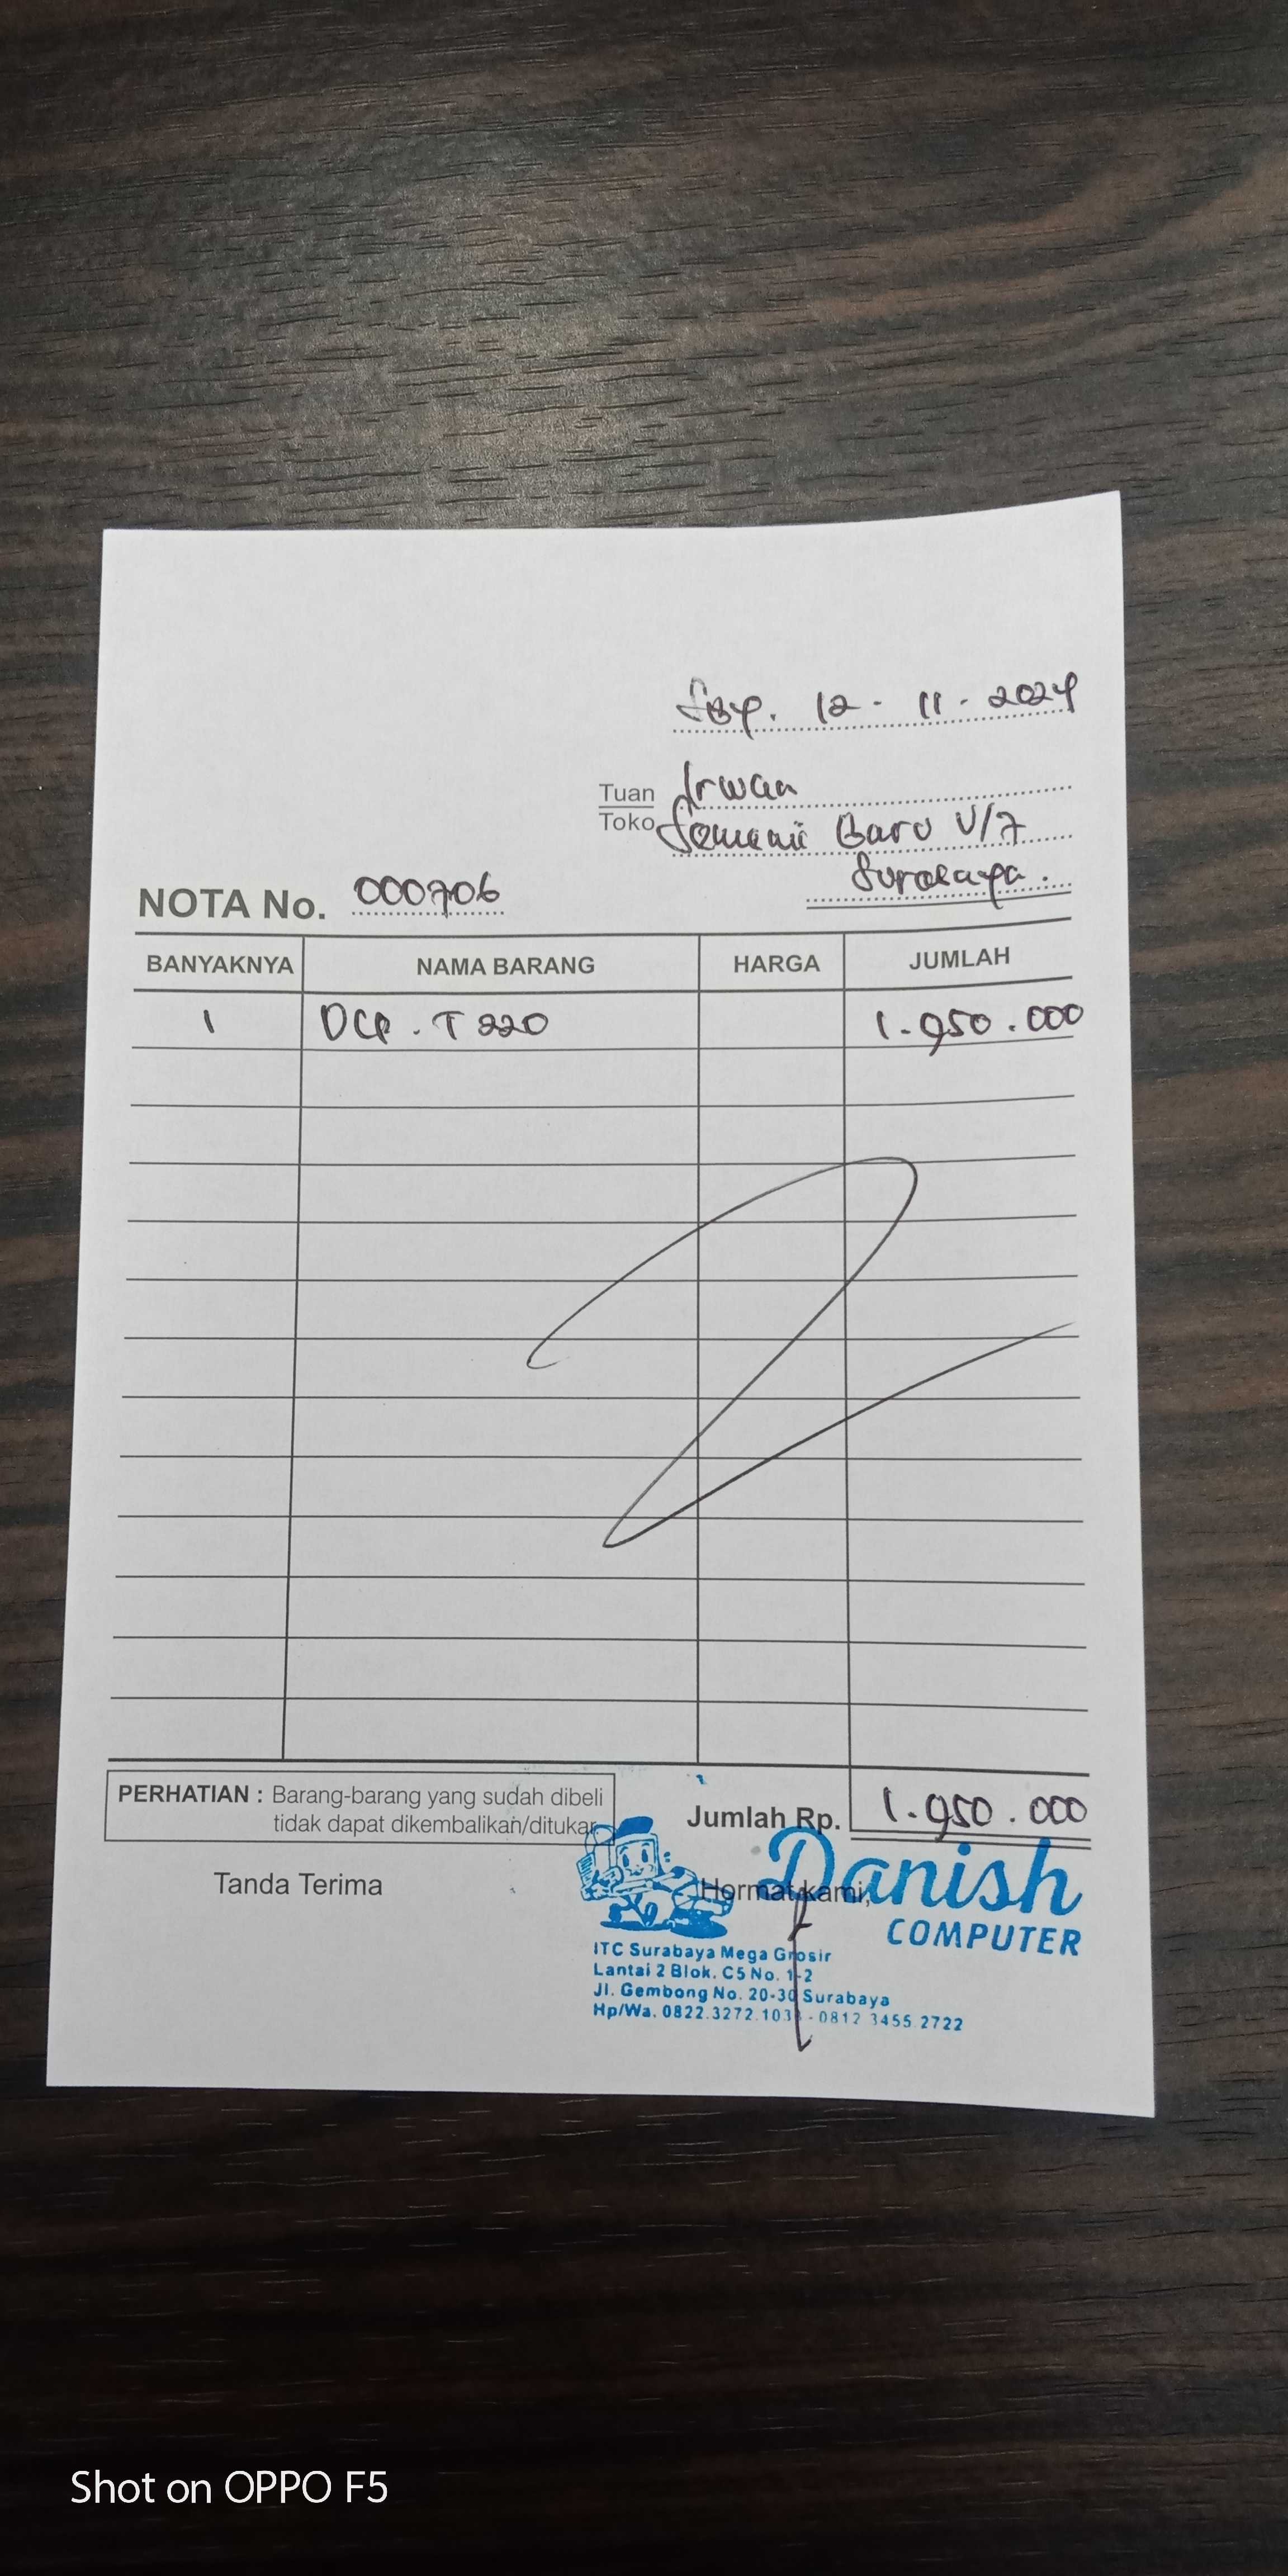 Sby. 12 - 11 - 2024
Tuan Irwan
Toko Baru V/7
Surabaya.
NOTA No. 000706
BANYAKNYA NAMA BARANG HARGA JUMLAH
1 DCP. T 220 1.950.000
PERHATIAN : Barang-barang yang sudah dibeli
tidak dapat dikembalikan/ditukar
Jumlah Rp. 1.950.000
Tanda Terima
Hormat kami,
Danish
COMPUTER
ITC Surabaya Mega Grosir
Lantai 2 Blok. C5 No. 1-2
Jl. Gembong No. 20-30 Surabaya
Hp/Wa. - 0812 3455 2722
Shot on OPPO F5